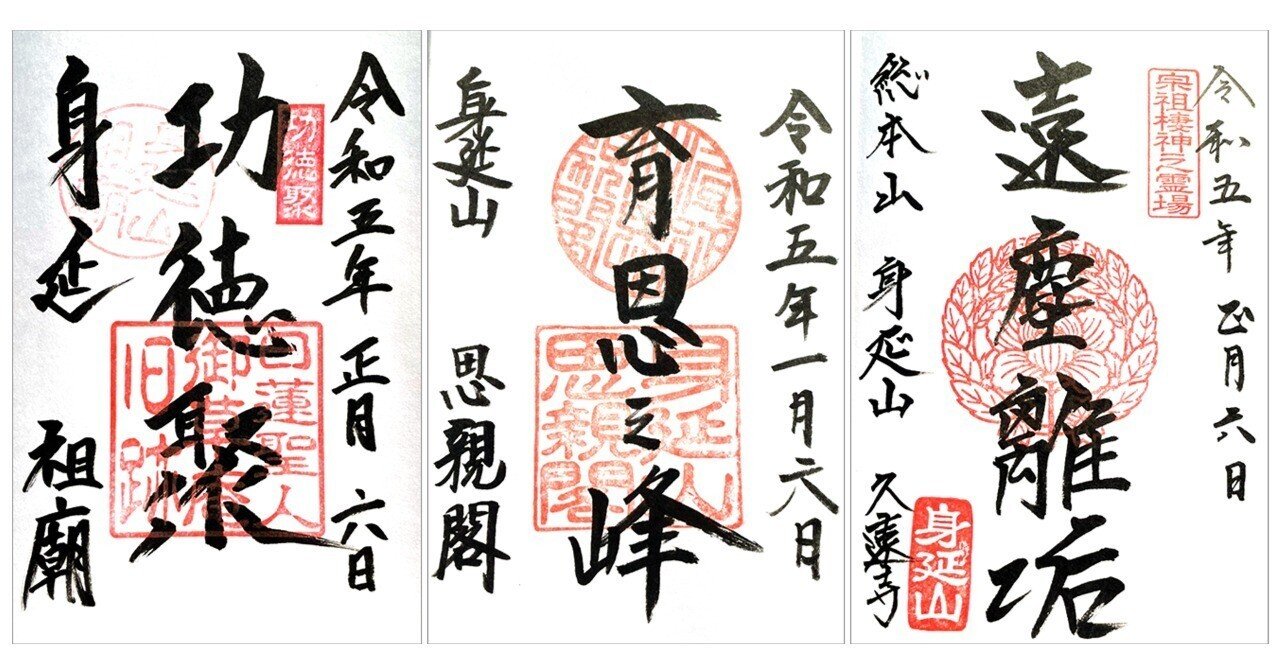 令和五年 正月 六日
功徳聚
功徳聚
日蓮聖人
御草庵
旧跡
身延 祖廟
令和五年一月六日
育恩之峰
身延山
思親閣
身延山 思親閣
令和五年 正月六日
宗祖棲神之霊場
遠塵離垢
身延山
総本山 身延山 久遠寺